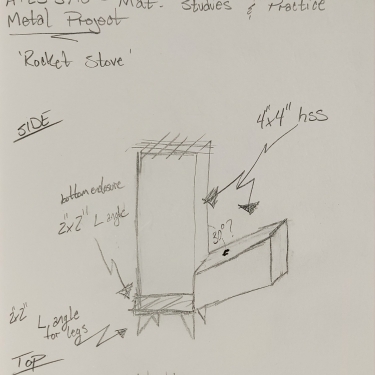 Mat. Studies & Practice
Metal Project
'Rocket Stove'
SIDE
4"x4" hss
bottom enclosure
2"x2" L angle
30°?
2"x2"
L angle
for legs
TOP